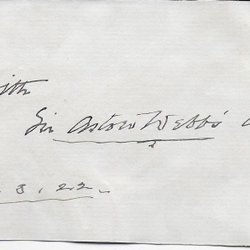 ith
Sir Aston Webb's
. 3 . 22 -